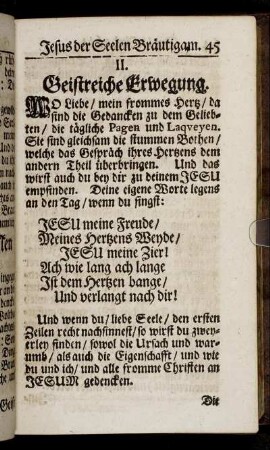 Jesus der Seelen Bräutigam. 45
II.
Geistreiche Erwegung.
WO Liebe / mein frommes Hertz / da
sind die Gedancken zu dem Gelieb-
ten / die tägliche Pagen und Laqveyen.
Sie sind gleichsam die stummen Bothen /
welche das Gespräch ihres Hertzens dem
andern Theil überbringen. Und das
wirst auch du bey dir zu deinem JESU
empfinden. Deine eigene Worte legens
an den Tag / wenn du singst:
JESU meine Freude /
Meines Hertzens Weyde /
JESU meine Zier!
Ach wie lang ach lange
Ist dem Hertzen bange /
Und verlangt nach dir!
Und wenn du / liebe Seele / den ersten
Zeilen recht nachsinnest / so wirst du zwey-
erley finden / sowol die Ursach und war-
umb / als auch die Eigenschafft / und wie
du und ich / und alle fromme Christen an
JESUM gedencken.
Die